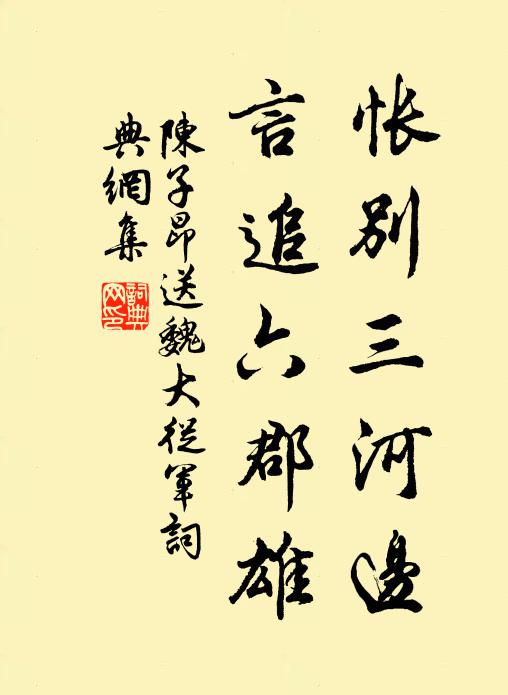 悵別三河邊
言追六郡雄
陳子昂送魏大從軍詞
典網集
詞典網印